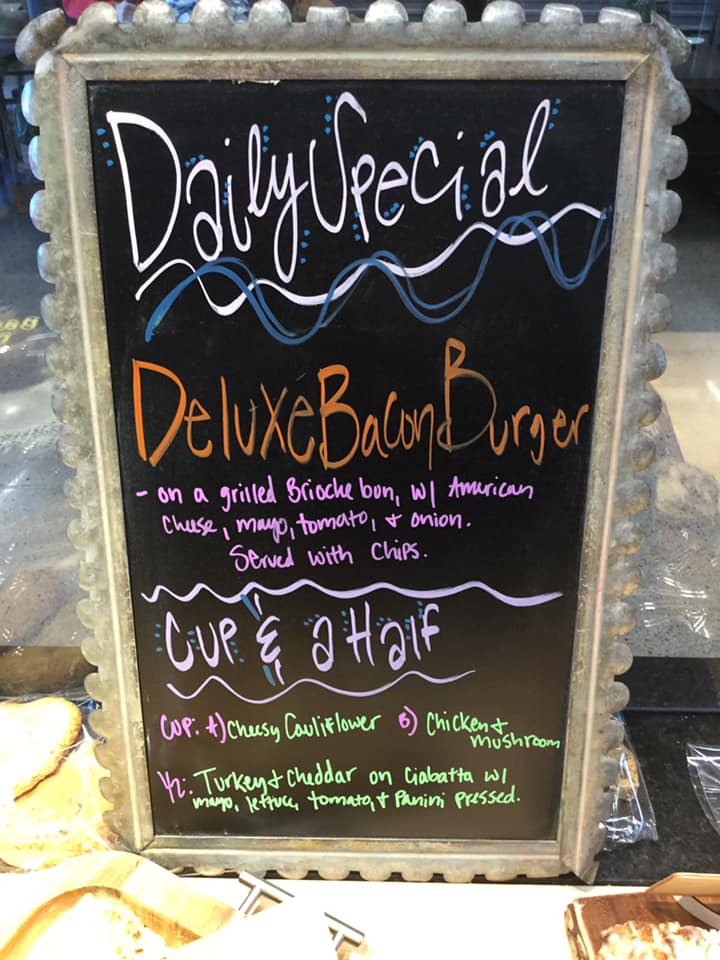 Daily Special
Deluxe Bacon Burger
- on a grilled Brioche bun, w/ American
cheese, mayo, tomato, + onion.
Served with Chips.
Cup & a Half
Cup: A) Cheesy Cauliflower B) Chicken +
mushroom
1/2: Turkey + Cheddar on Ciabatta w/
mayo, lettuce, tomato, + Panini pressed.